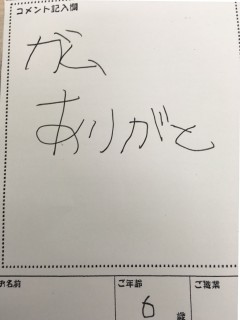 コメント記入欄
ガム
ありがと
お名前
ご年齢
ご職業
6
歳